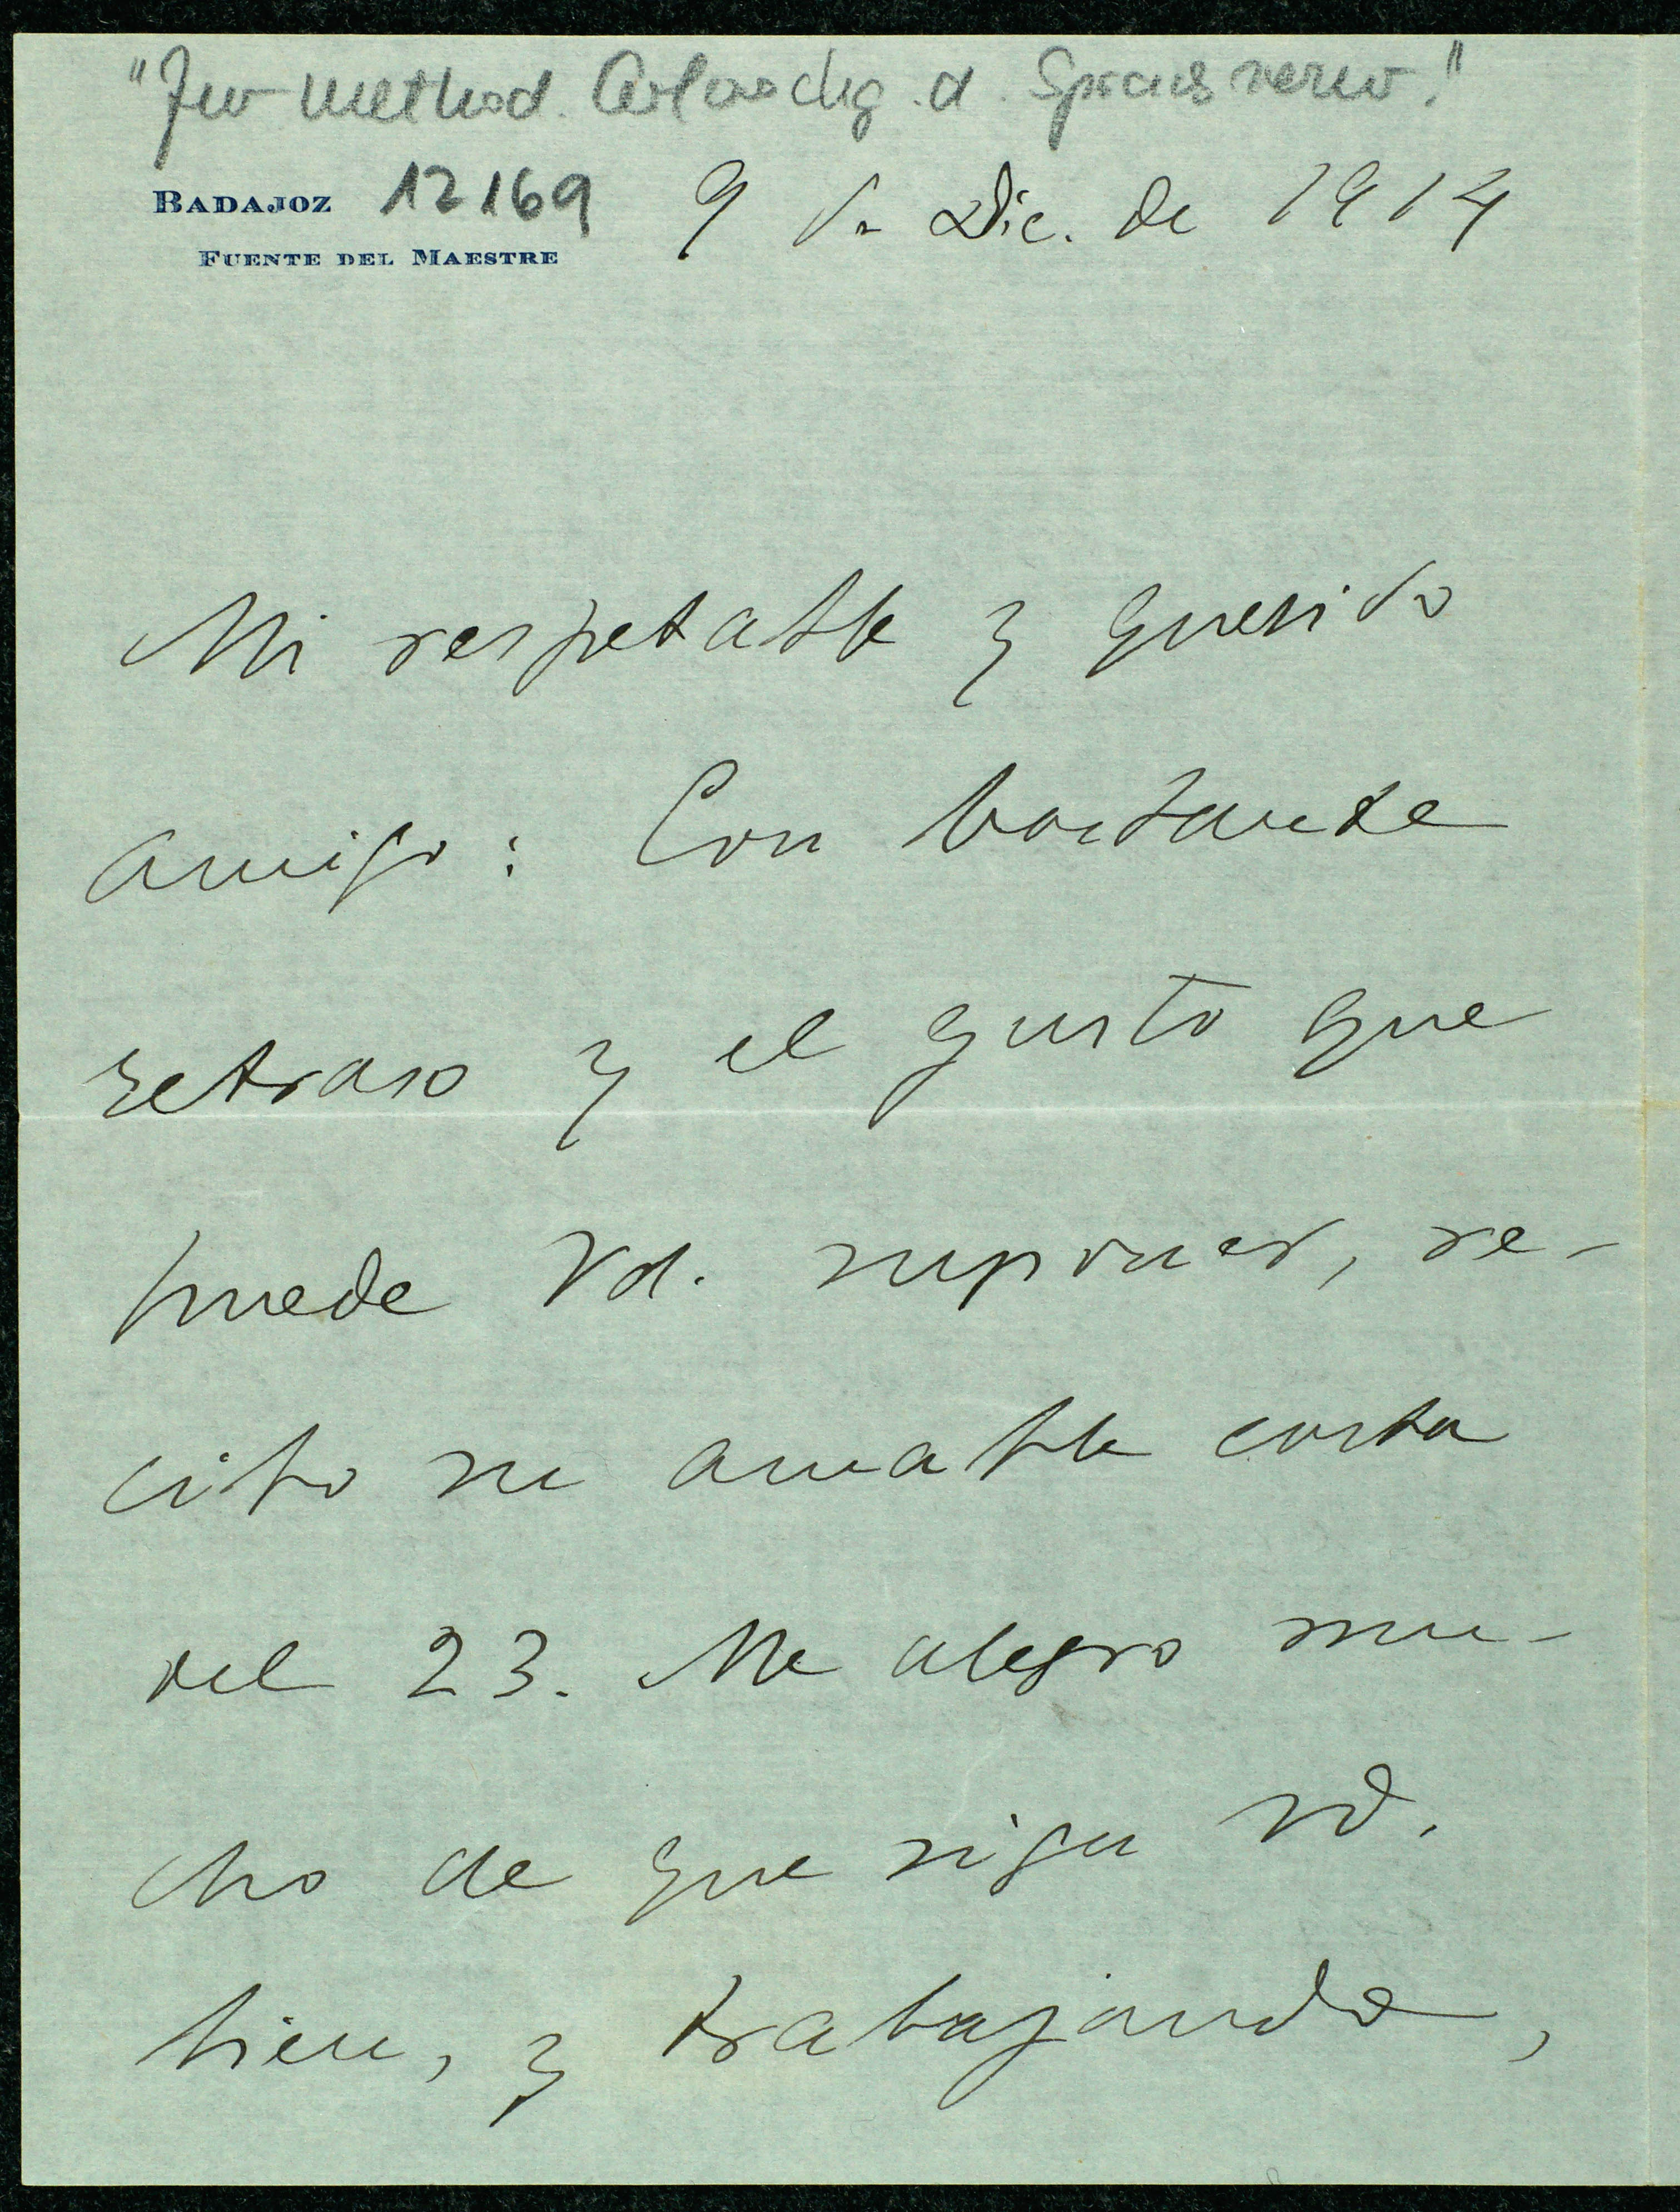 "Zur Method. Erforschg. d. Sprachverw."
BADAJOZ 12169 9 de Dic. de 1914
FUENTE DEL MAESTRE
Mi respetable y querido
amigo: Con bastante
retraso y el gusto que
puede Vd. suponer, re-
cibo su amable carta
del 23. Me alegro mu-
cho de que siga Vd.
bien, y trabajando,